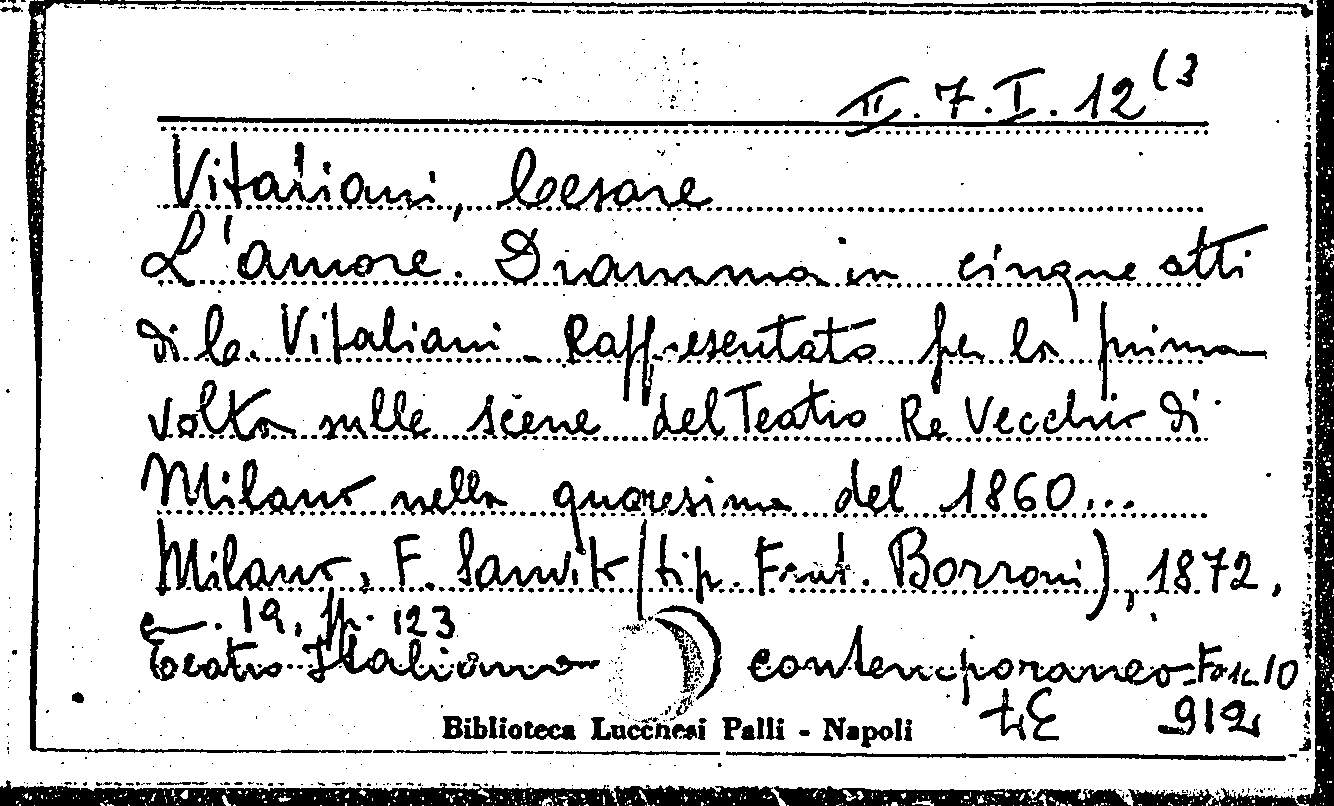 II. 7. I. 12 (3
Vitaliani, Cesare
L'amore. Dramma in cinque atti
di C. Vitaliani - Rappresentato per la prima
volta sulle scene del Teatro Re Vecchio di
Milano nella quaresima del 1860...
Milano, F. Sanvito (tip. Frat. Borroni), 1872,
cm. 19, pp. 123
Teatro Italiano contemporaneo - Fasc. 10
912
Biblioteca Lucchesi Palli - Napoli